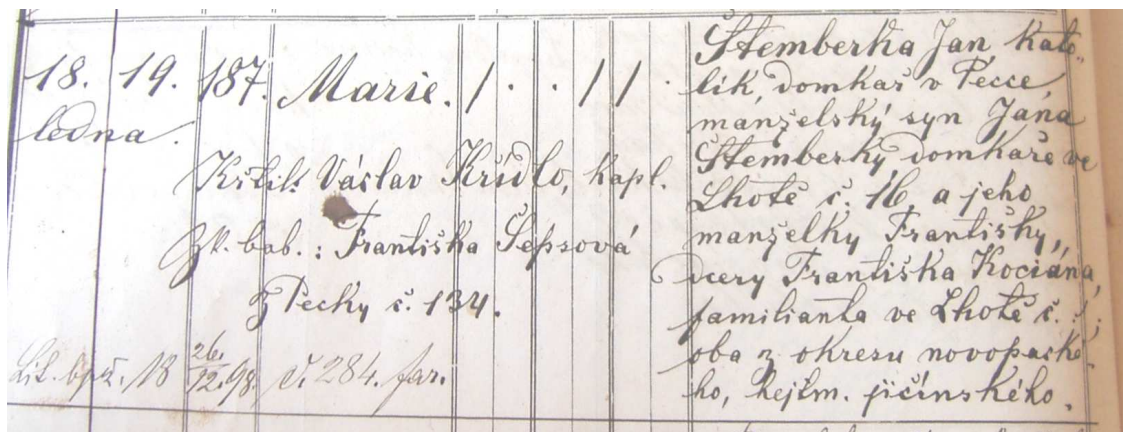 18. 19. 187. Marie. / . . / / .
ledna.
Křtil: Václav Křídlo, kapl.
Zk. bab.: Františka Šepsová
z Pecky č. 134.
26./12. 98. č. 284. far.
Štemberka Jan kato-
lík, domkař v Pecce,
manželský syn Jana
Štemberky domkaře ve
Lhotě č. 16, a jeho
manželky Františky,
dcery Františka Kociána,
familianta ve Lhotě č.
oba z okresu novopacké-
ho, hejtm. jičínského.